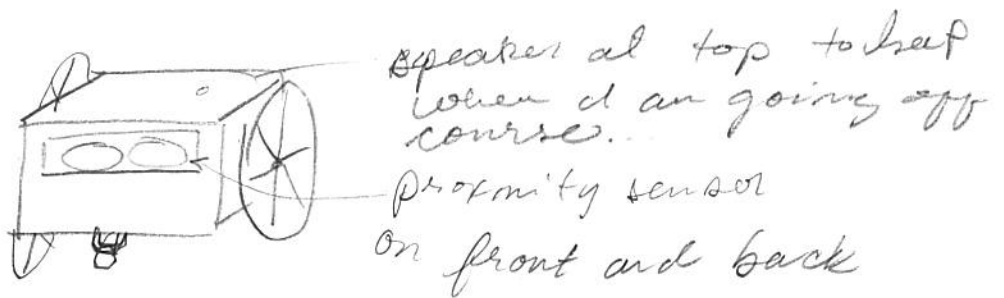 speaker at top to beep
when I am going off
course...
proximity sensor
on front and back